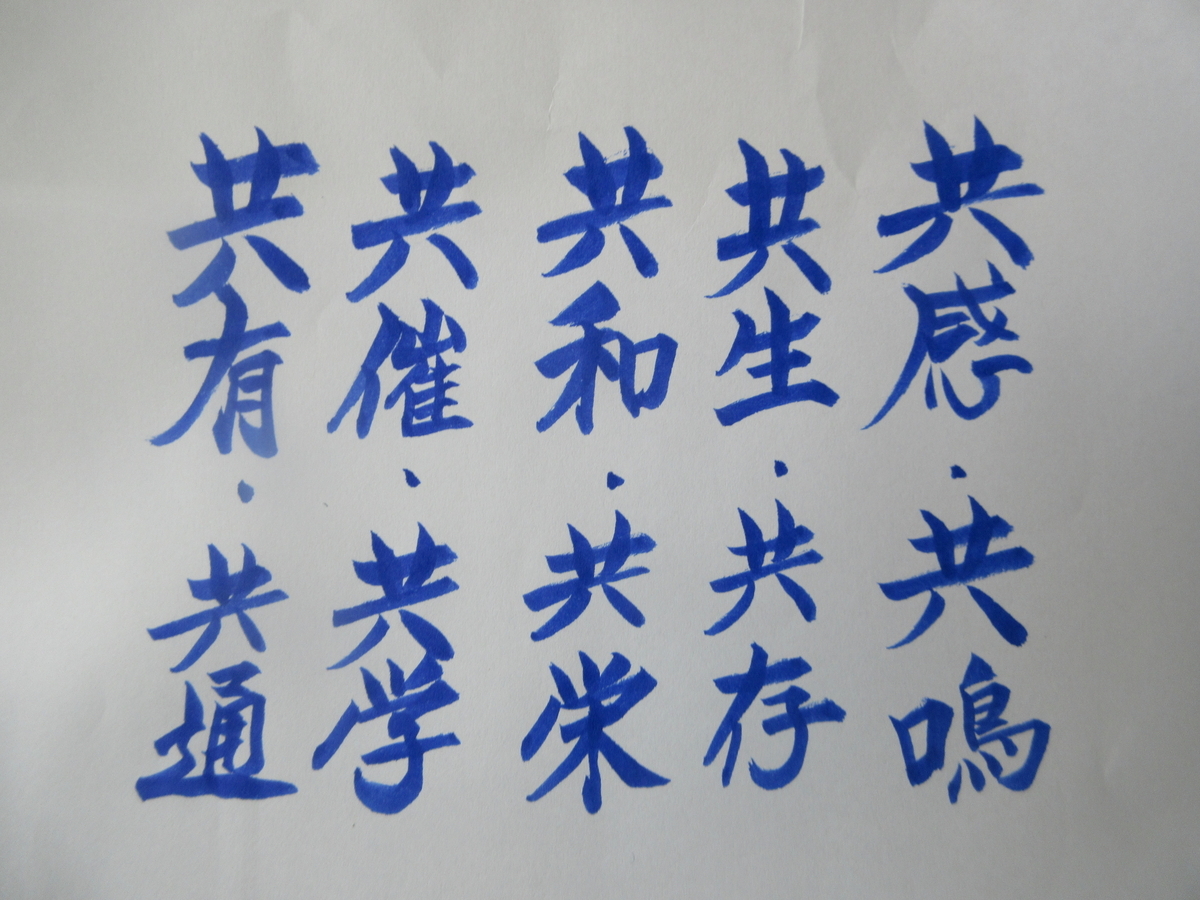 共感・共鳴
共生・共存
共和・共栄
共催・共学
共有・共通